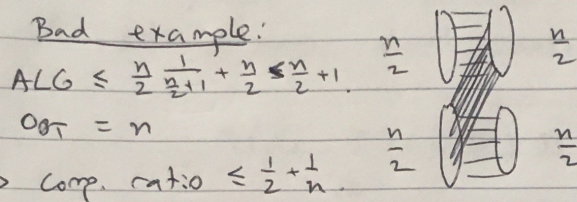 Bad example:
ALG ≤ n/2 1/(n/2+1) + n/2 ≤ n/2 + 1.
OPT = n
> Comp. ratio ≤ 1/2 + 1/n.
n/2 n/2
n/2 n/2